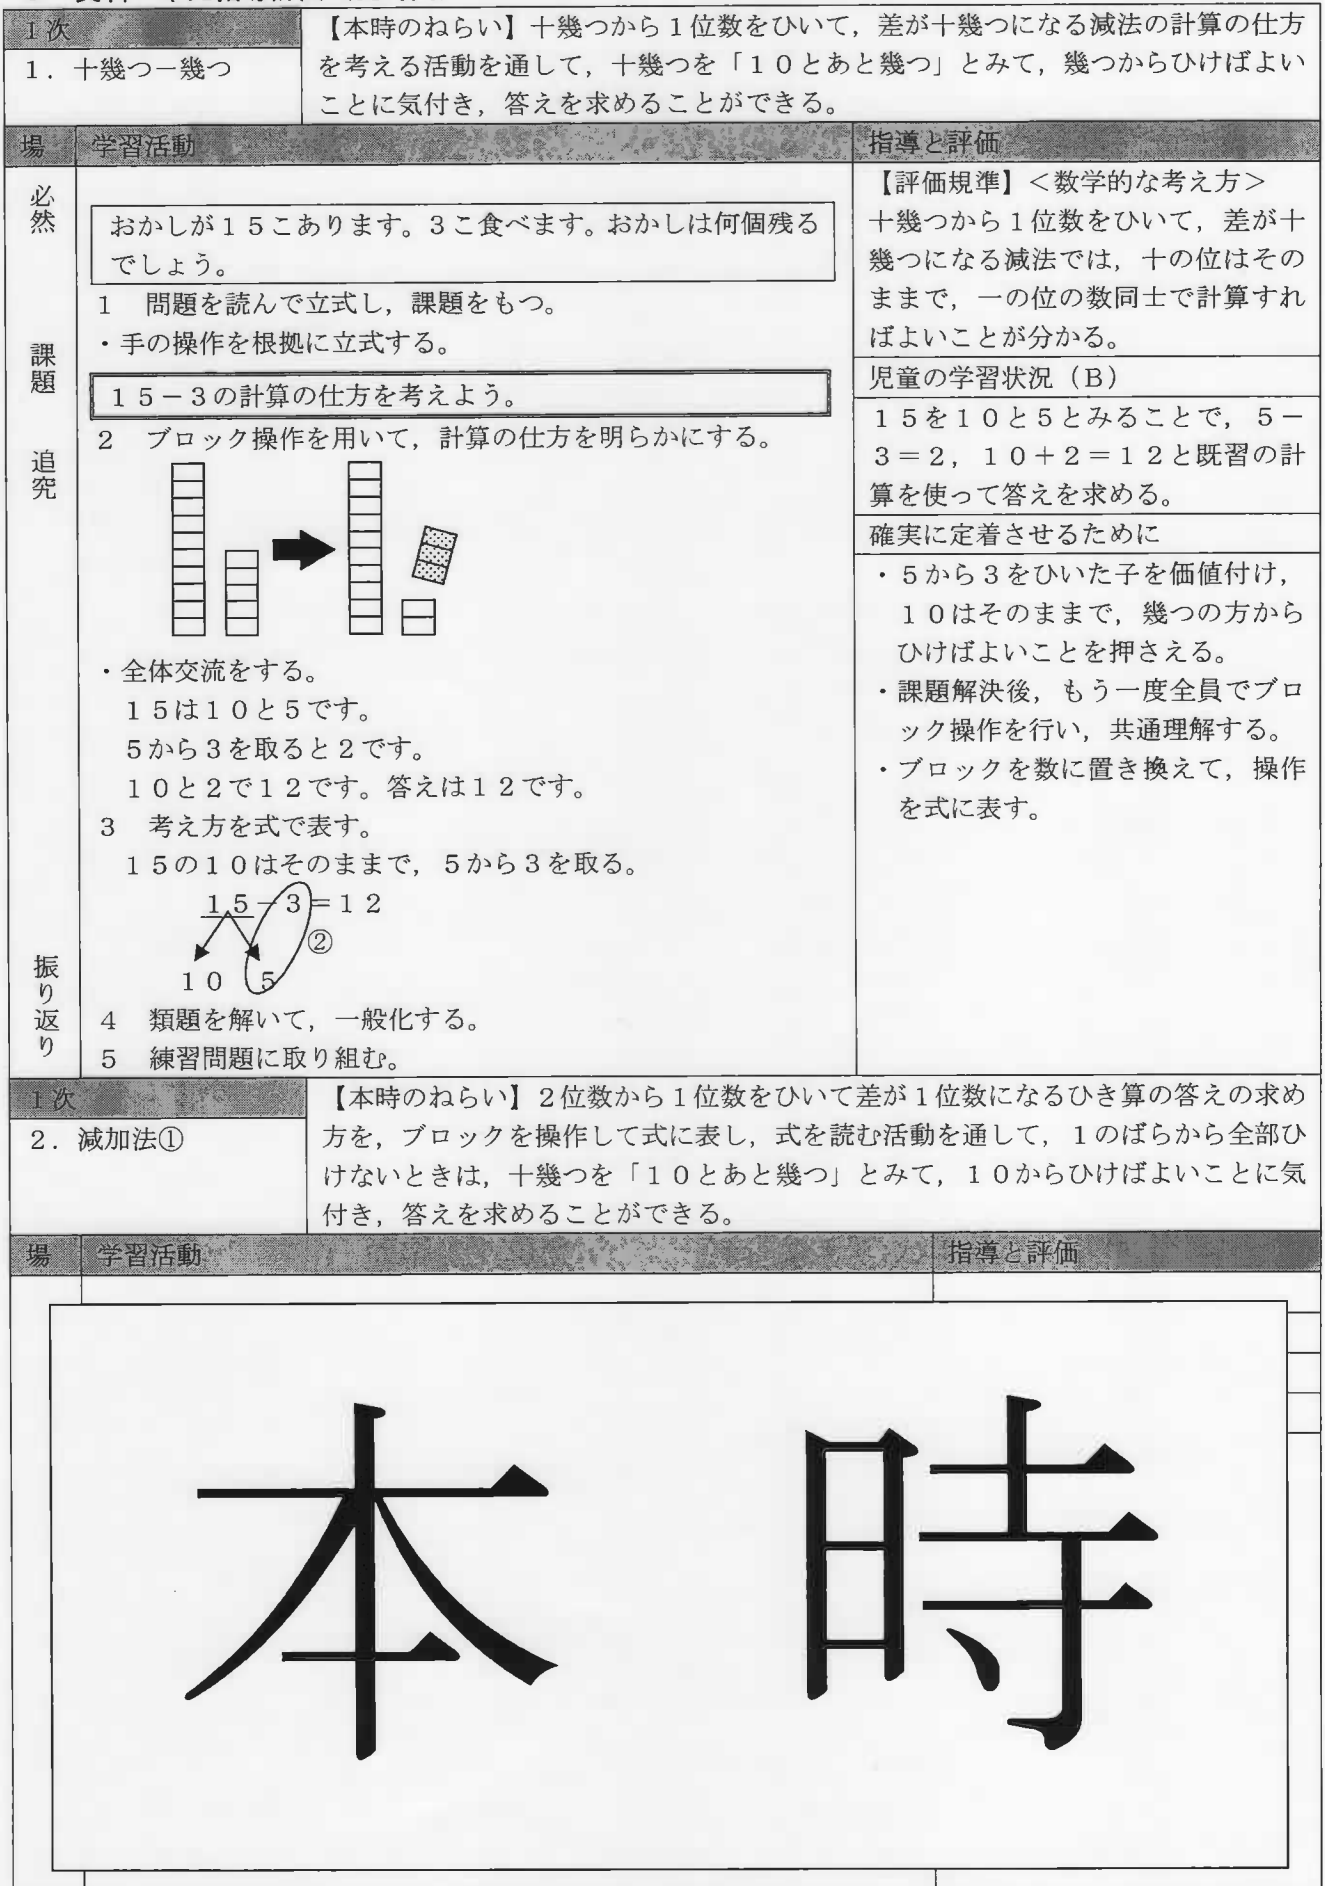 1次
1．十幾つ－幾つ
【本時のねらい】十幾つから1位数をひいて，差が十幾つになる減法の計算の仕方
を考える活動を通して，十幾つを「10とあと幾つ」とみて，幾つからひけばよい
ことに気付き，答えを求めることができる。
場
学習活動
指導と評価
必然
おかしが15こあります。3こ食べます。おかしは何個残る
でしょう。
1　問題を読んで立式し，課題をもつ。
・手の操作を根拠に立式する。
課題
15－3の計算の仕方を考えよう。
追究
2　ブロック操作を用いて，計算の仕方を明らかにする。
・全体交流をする。
15は10と5です。
5から3を取ると2です。
10と2で12です。答えは12です。
3　考え方を式で表す。
15の10はそのままで，5から3を取る。
15－3＝12
②
10　5
振り返り
4　類題を解いて，一般化する。
5　練習問題に取り組む。
【評価規準】＜数学的な考え方＞
十幾つから1位数をひいて，差が十
幾つになる減法では，十の位はその
ままで，一の位の数同士で計算すれ
ばよいことが分かる。
児童の学習状況（B）
15を10と5とみることで，5－
3＝2，10＋2＝12と既習の計
算を使って答えを求める。
確実に定着させるために
・5から3をひいた子を価値付け，
10はそのままで，幾つの方から
ひけばよいことを押さえる。
・課題解決後，もう一度全員でブロ
ック操作を行い，共通理解する。
・ブロックを数に置き換えて，操作
を式に表す。
1次
2．減加法①
【本時のねらい】2位数から1位数をひいて差が1位数になるひき算の答えの求め
方を，ブロックを操作して式に表し，式を読む活動を通して，1のばらから全部ひ
けないときは，十幾つを「10とあと幾つ」とみて，10からひけばよいことに気
付き，答えを求めることができる。
場
学習活動
指導と評価
本時